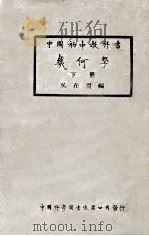 中國初中教科書
幾何學
下冊
吳在淵編
中國科學圖書儀器公司發行